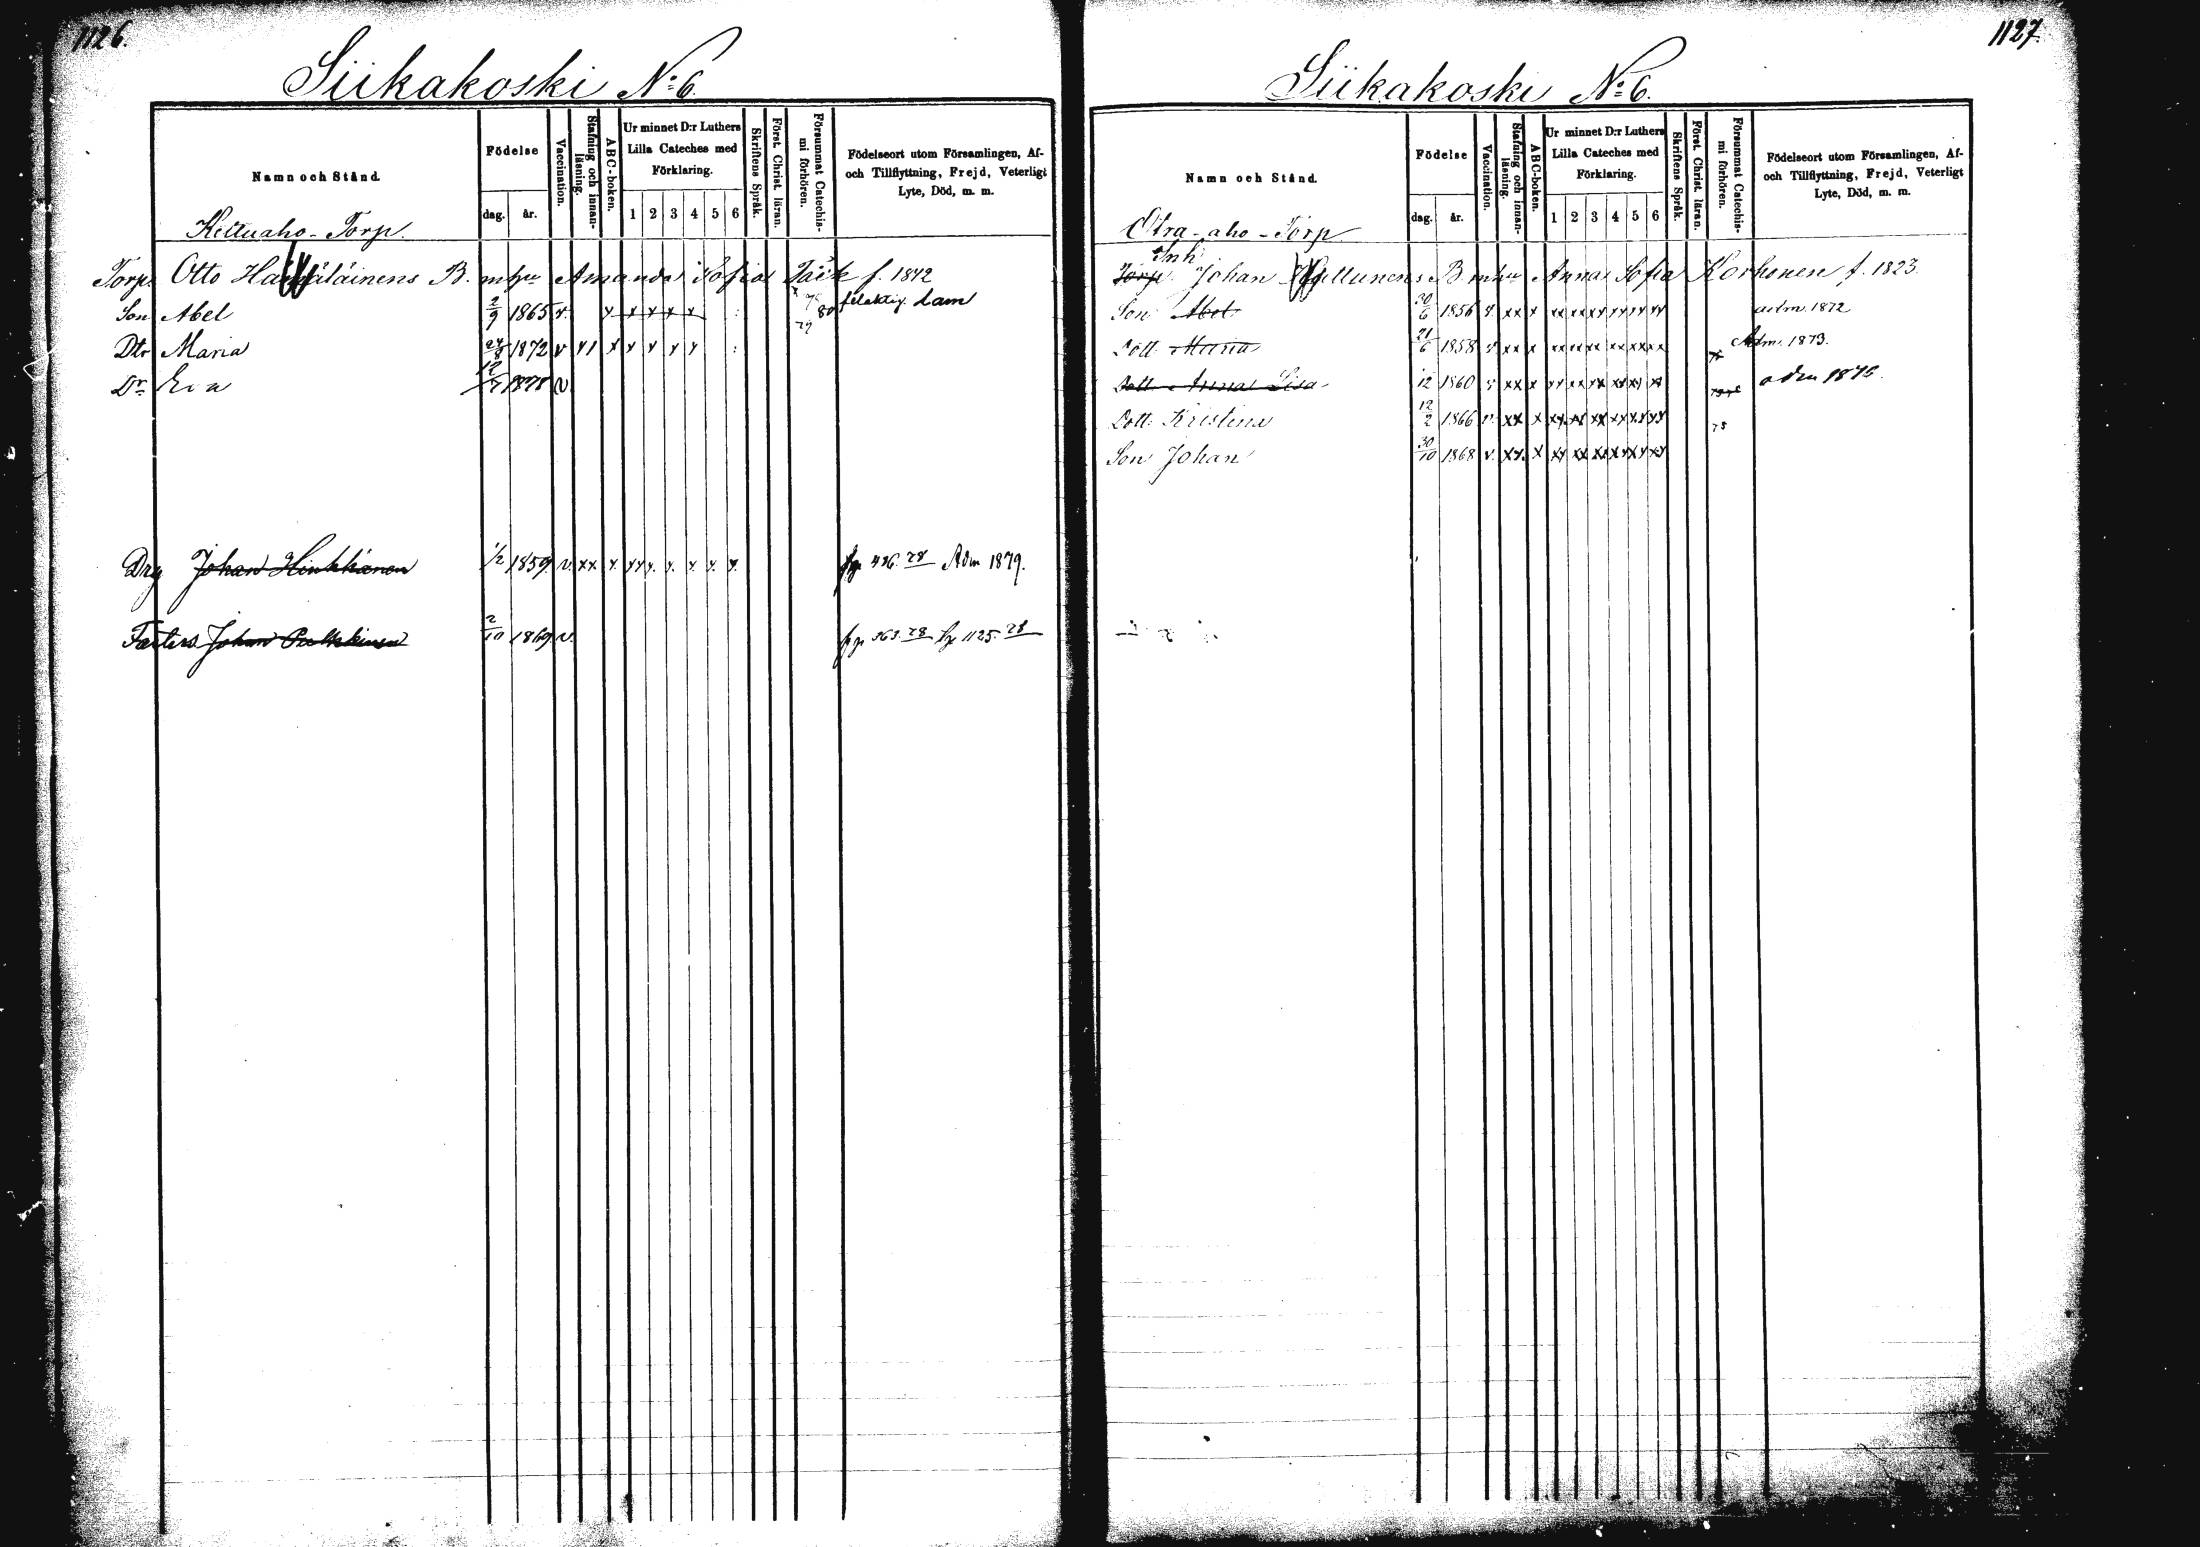 1126.
Siikakoski No 6.
Namn och Stånd.
Födelse
dag. år.
Vaccination.
Stafning och innanläsning.
ABC-boken.
Ur minnet D:r Luthers Lilla Cateches med Förklaring.
1 2 3 4 5 6
Skriftens Språk.
Först. Christ. läran.
Försummat Catechismi förhören.
Födelseort utom Församlingen, Af- och Tillflyttning, Frejd, Veterligt Lyte, Död, m. m.
Keltuaho - Torp.
Torp. Otto B. m hu Amanda Sofia f. 1842
Son Abel 2/9 1865 v. x x x x x 79 80 Lam
Dtr Maria 24/8 1872 v x x x x x
Dr Eva 12/7 1878 v
Drg Johan 1/2 1859 v. xx x. xx x. x. x. x. x. 78 Adm 1879.
Johan 2/10 1869 v. 78 1125. 78
1127.
Siikakoski No 6.
Namn och Stånd.
Födelse
dag. år.
Vaccination.
Stafning och innanläsning.
ABC-boken.
Ur minnet D:r Luthers Lilla Cateches med Förklaring.
1 2 3 4 5 6
Skriftens Språk.
Först. Christ. läran.
Försummat Catechismi förhören.
Födelseort utom Församlingen, Af- och Tillflyttning, Frejd, Veterligt Lyte, Död, m. m.
Otra-aho - Torp
Inh
Torp. Johan B m hu Anna Sofia Korhonen f. 1823.
Son Abel 30/6 1856 v xx x xx xx xx xx xx xx adm. 1872
Dott. Maria 21/6 1858 v xx x xx xx xx xx xx xx Adm. 1873.
Dott. Anna Lisa 12 1860 v xx x xx xx xx xx xx xx
Dott. Kristina 12/2 1866 v. xx x xx xx xx xx xx xx 78
Son Johan 30/10 1868 v. xx. x xx xx xx xx xx xx